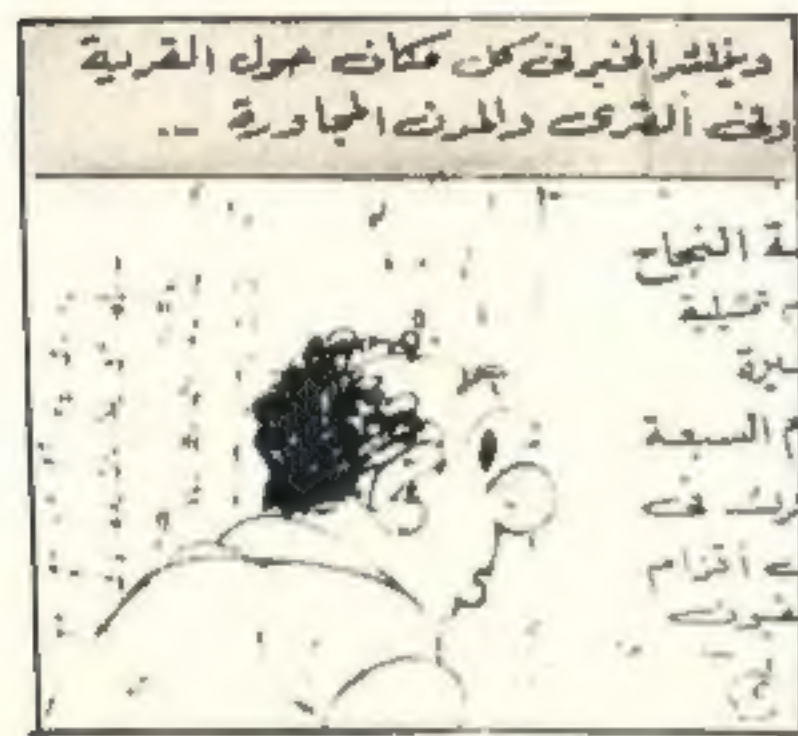 وينتشر الخبر فى كل مكان حول القرية
وفى القرى والمدن المجاورة ...
النجاح
تمثيلية
السبعة
فى
أقزام